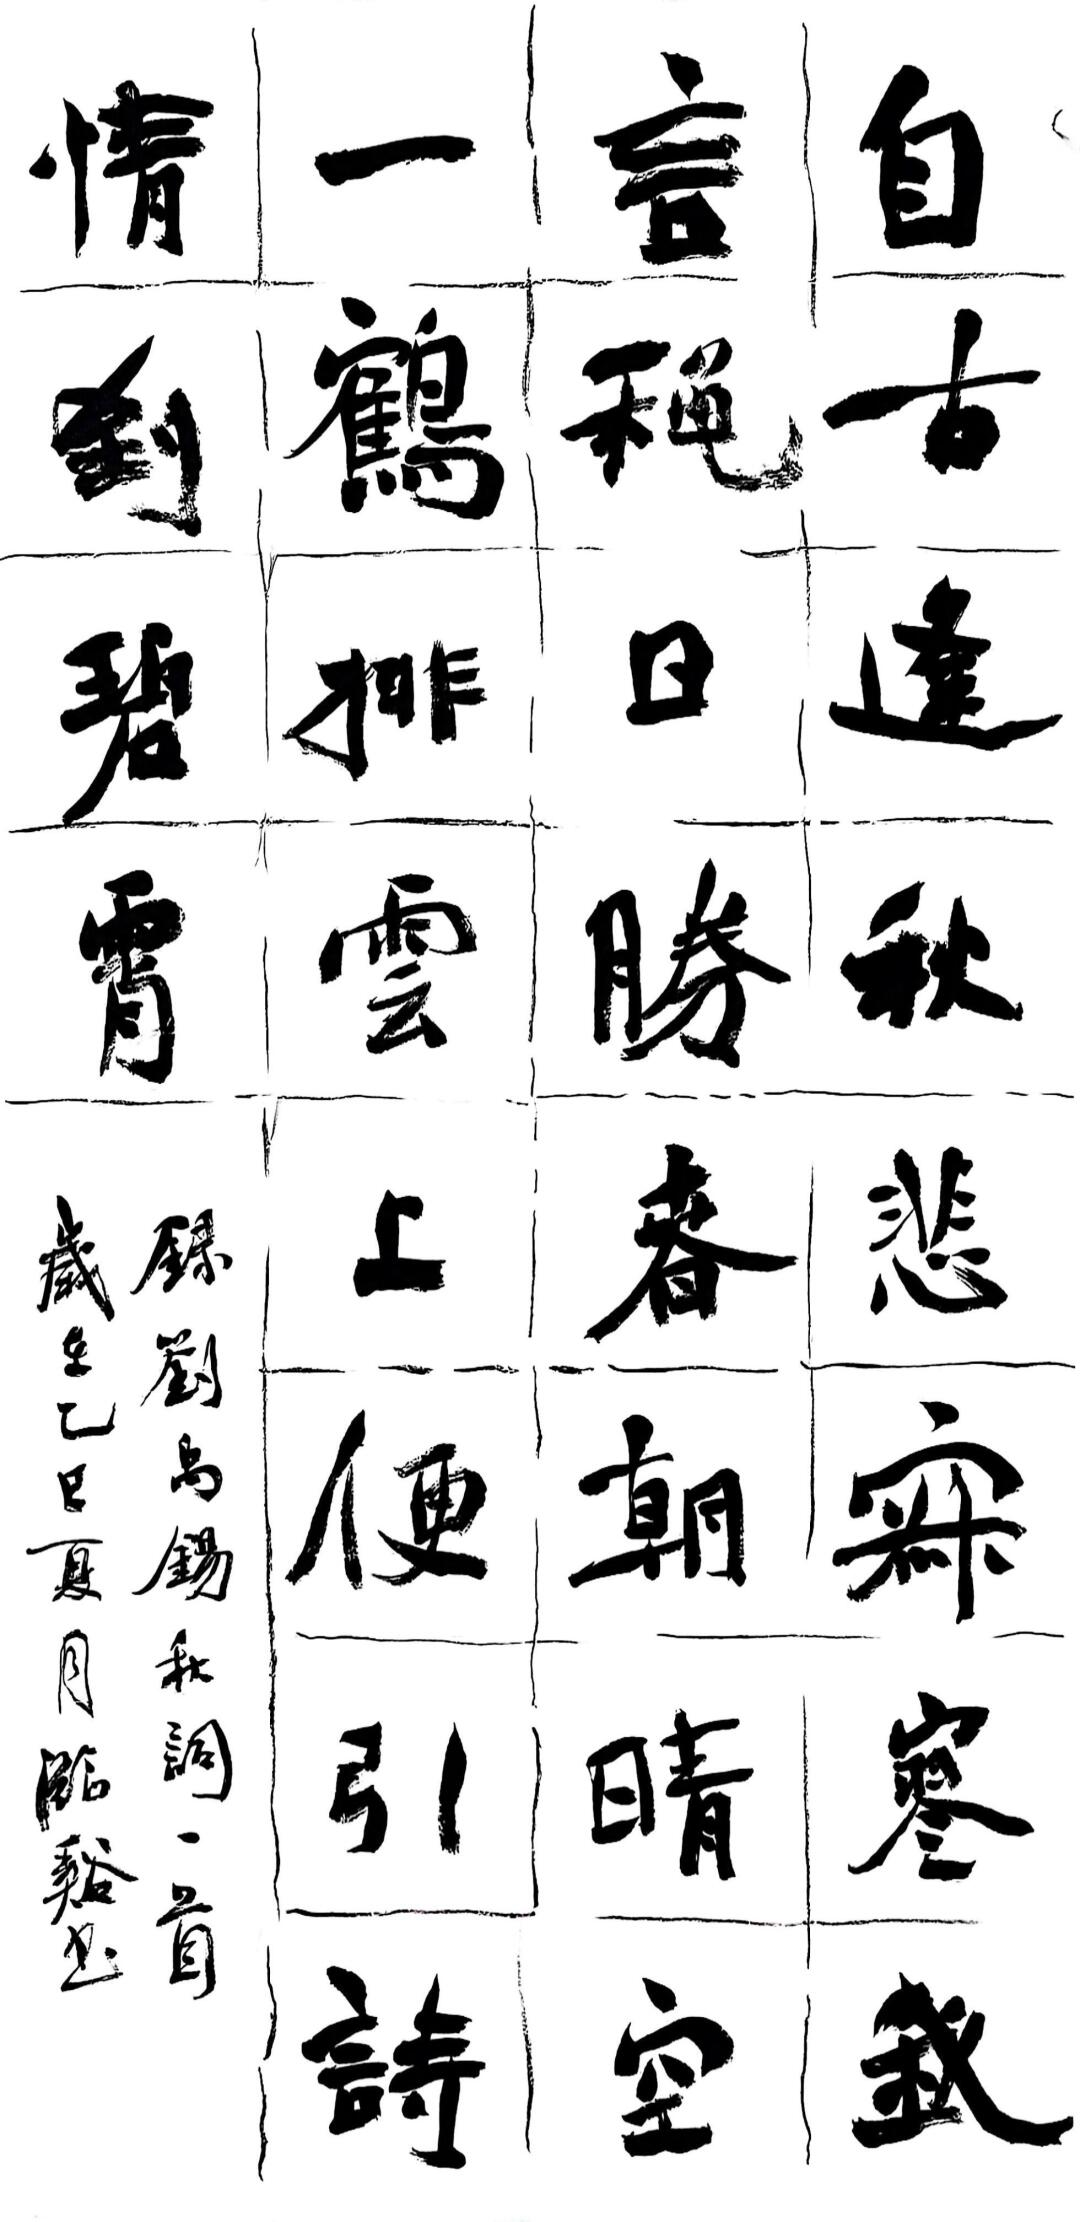 自古逢秋悲寂寥我
言龝日勝春朝晴空
一鶴排雲上便引詩
情到碧霄
錄劉禹錫秋詞一首
歲在乙巳夏月谿書